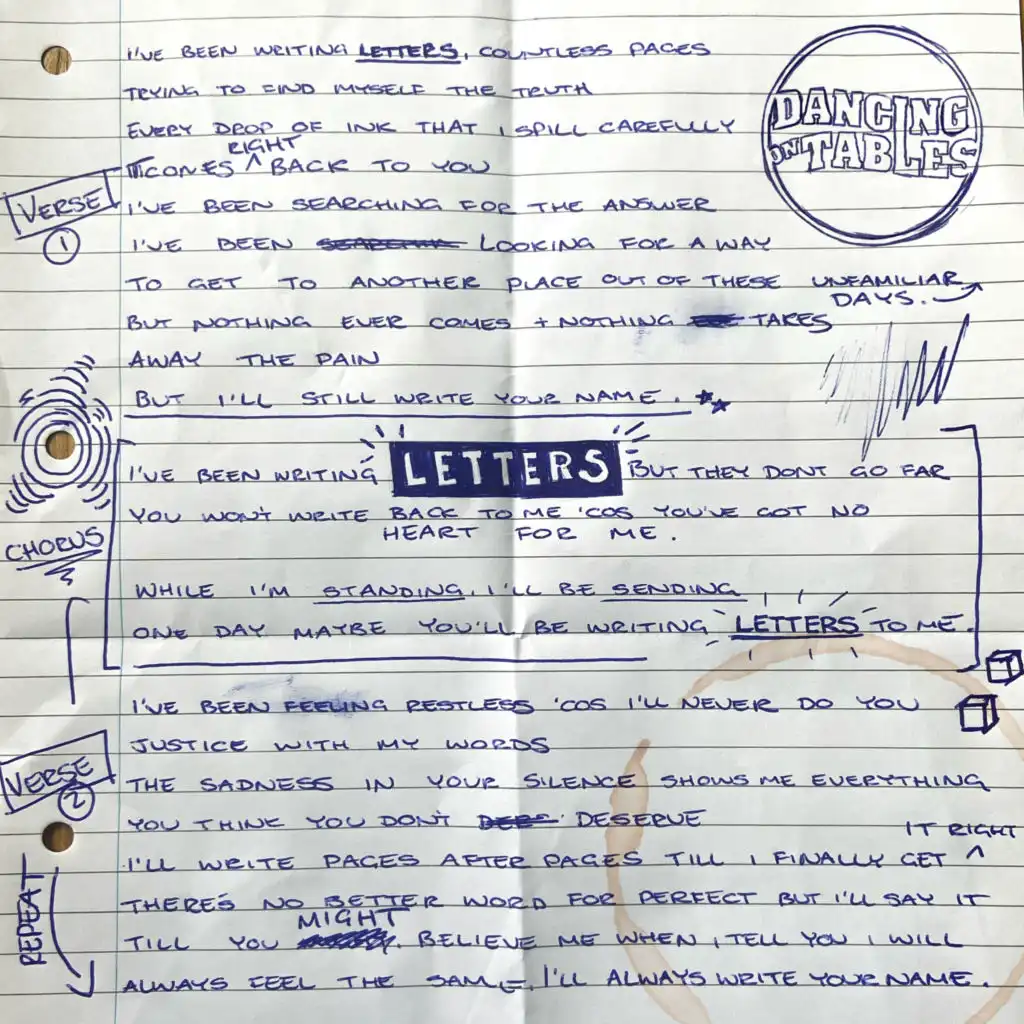 I'VE BEEN WRITING LETTERS, COUNTLESS PAGES
TRYING TO FIND MYSELF THE TRUTH
EVERY DROP OF INK THAT I SPILL CAREFULLY
COMES RIGHT BACK TO YOU
I'VE BEEN SEARCHING FOR THE ANSWER
I'VE BEEN LOOKING FOR A WAY
TO GET TO ANOTHER PLACE OUT OF THESE UNFAMILIAR
DAYS.
BUT NOTHING EVER COMES + NOTHING TAKES
AWAY THE PAIN
BUT I'LL STILL WRITE YOUR NAME.
DANCING
ON TABLES
VERSE
1
I'VE BEEN WRITING LETTERS BUT THEY DONT GO FAR
YOU WON'T WRITE BACK TO ME 'COS YOU'VE GOT NO
HEART FOR ME.
WHILE I'M STANDING, I'LL BE SENDING
ONE DAY MAYBE YOU'LL BE WRITING LETTERS TO ME.
CHORUS
I'VE BEEN FEELING RESTLESS 'COS I'LL NEVER DO YOU
JUSTICE WITH MY WORDS
THE SADNESS IN YOUR SILENCE SHOWS ME EVERYTHING
YOU THINK YOU DON'T DESERVE
I'LL WRITE PAGES AFTER PAGES TILL I FINALLY GET IT RIGHT
THERE'S NO BETTER WORD FOR PERFECT BUT I'LL SAY IT
TILL YOU MIGHT BELIEVE ME WHEN I TELL YOU I WILL
ALWAYS FEEL THE SAME. I'LL ALWAYS WRITE YOUR NAME.
VERSE
2
REPEAT